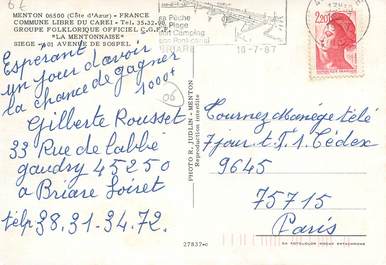 6€
MENTON 06500 (Côte d'Azur) - FRANCE
COMMUNE LIBRE DU CAREI - Tél. 35.32.00
GROUPE FOLKLORIQUE OFFICIEL C.G.F.F.
"LA MENTONNAISE"
SIEGE 401 AVENUE DE SOSPEL
sa Pêche
sa Plage
son Camping
BRIARE
10-7-87
2,20
Esperant
un jour d'avoir
la chance de gagner
1000+
Gilberte Rousset
33 Rue de l'abbé
gaudry 45250
à Briare Loiret
télp 38.31-34.72.
06
PHOTO R. JUDLIN - MENTON
Reproduction interdite
27837+c
Tournez Manège télé
7 jour T.F.1. Cédex
9645
75715
Paris